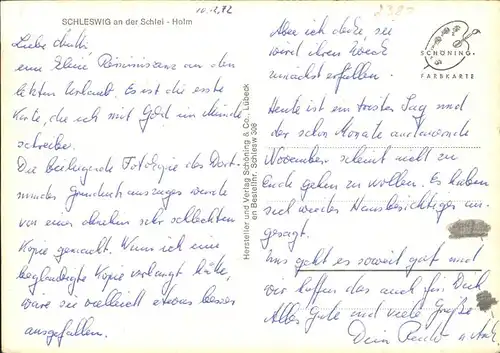 10.12.72
SCHLESWIG an der Schlei - Holm
Liebe
eine kleine Reminiszenz an den
letzten Urlaub. Es ist die erste
Karte, die ich mit Gold im Munde
schreibe.
Die beiliegende Fotokopie des Dort-
munder Grundbuchauszuges wurde
von einer ohnehin sehr schlechten
Kopie gemacht. Wenn ich eine
beglaubigte Kopie verlangt hätte,
wäre sie vielleicht etwas besser
ausgefallen.
Hersteller und Verlag Schöning & Co., Lübeck
en Bestellnr. Schlesw 308
Aber ich denke, sie
wird ihren Zweck
zunächst erfüllen.
Heute ist ein trister Tag und
der schon Monate andauernde
November scheint nicht zu
Ende gehen zu wollen. Es haben
sich wieder Hausbesichtiger an-
gesagt.
Uns geht es soweit gut und
wir hoffen das auch für Dich
Alles Gute und viele Grüße
Dein
SCHÖNING
FARBKARTE